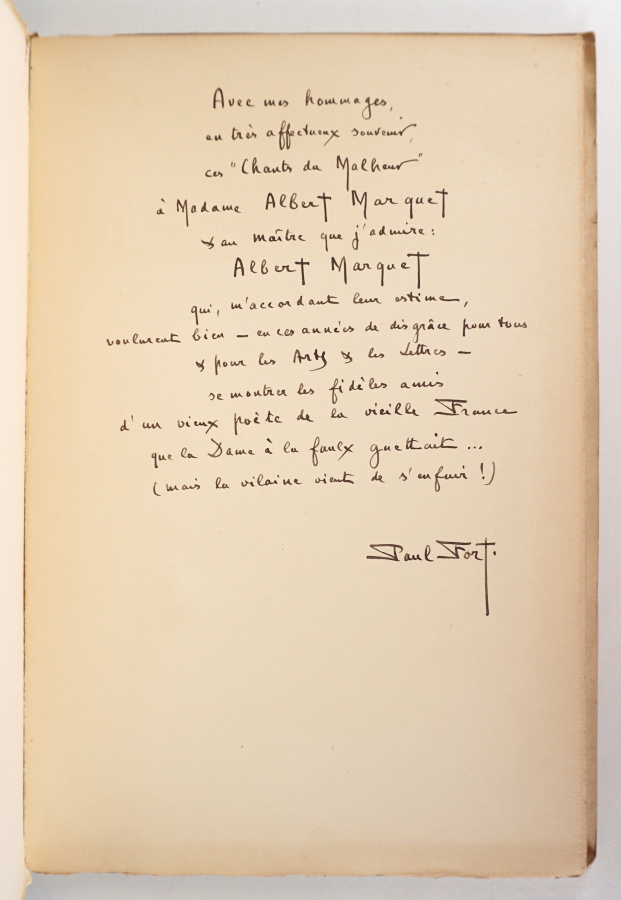 Avec mes hommages,
en très affectueux souvenir,
ces "Chants du Malheur"
à Madame Albert Marquet
& au maître que j'admire :
Albert Marquet
qui, m'accordant leur estime,
voulurent bien — en ces années de disgrâce pour tous
& pour les Arts & les Lettres —
se montrer les fidèles amis
d'un vieux poète de la vieille France
que la Dame à la faulx guettait ...
(mais la vilaine vient de s'enfuir !)
Paul Fort.